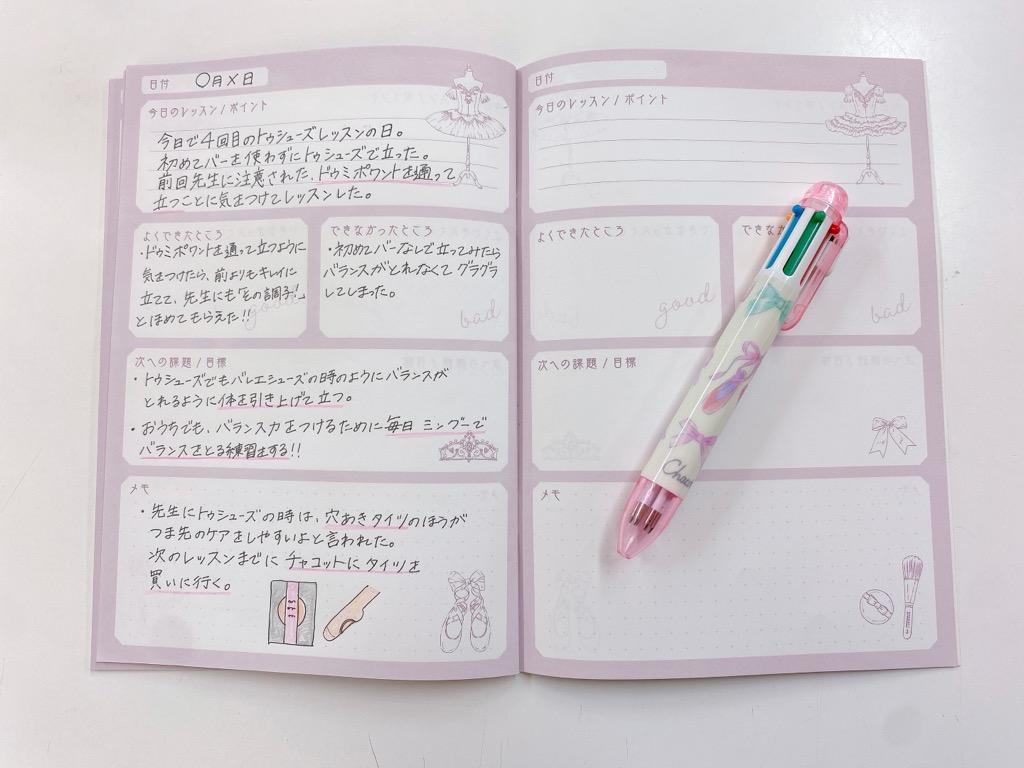 日付 〇月×日
今日のレッスン/ポイント
今日で4回目のトゥシューズレッスンの日。
初めてバーを使わずにトゥシューズで立った。
前回先生に注意された、ドゥミポワントを通って
立つことに気をつけてレッスンした。
よくできたところ
・ドゥミポワントを通って立つように
気をつけたら、前よりもキレイに
立てて、先生にも「その調子!」
とほめてもらえた!!
good
できなかったところ
・初めてバーなしで立ってみたら
バランスがとれなくてグラグラ
してしまった。
bad
次への課題/目標
・トゥシューズでもバレエシューズの時のようにバランスが
とれるように体を引き上げて立つ。
・おうちでも、バランス力をつけるために毎日ミングーで
バランスをとる練習をする!!
メモ
・先生にトゥシューズの時は、穴あきタイツのほうが
つま先のケアをしやすいよと言われた。
次のレッスンまでにチャコットにタイツを
買いに行く。
日付
今日のレッスン/ポイント
よくできたところ
good
できな
bad
次への課題/目標
メモ
Chac